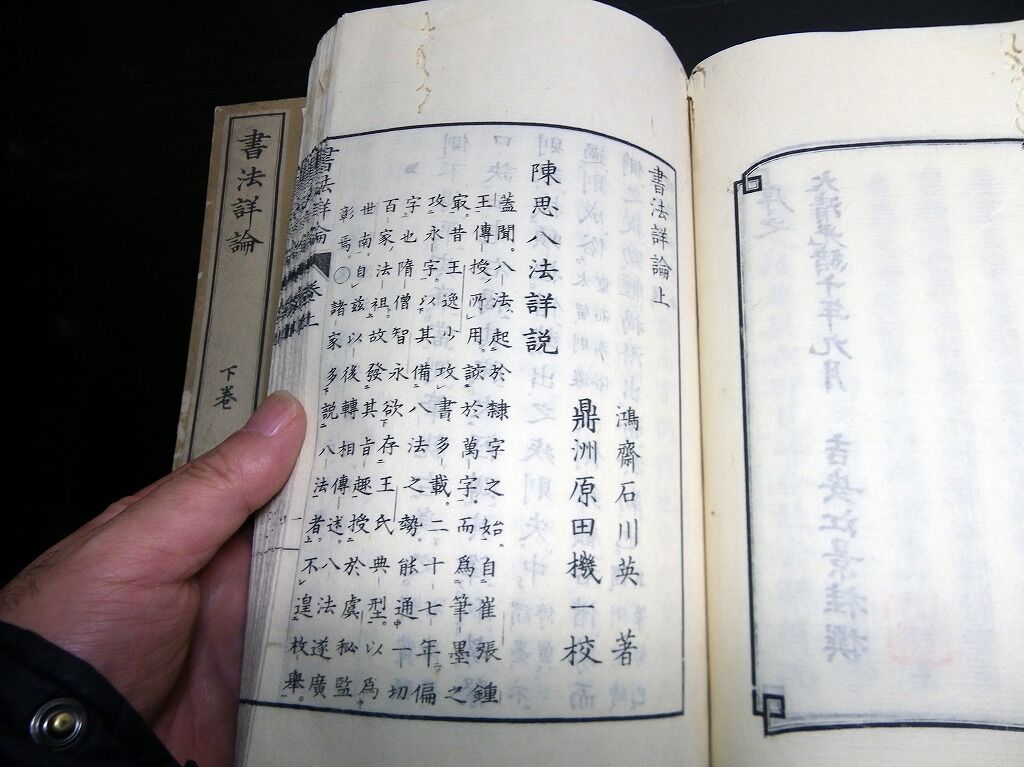 書法詳論上
鴻齋石川英 著
鼎洲原田機一 校
陳思八法詳説
蓋聞。八法起於隸字之始。自崔張鍾
王傳授所用。該於萬字。而爲筆墨之
冣。昔王逸少攻書多載。二十七年偏
攻永字。以其備八法之勢。能通一切
字也。隋僧智永欲存王氏典型。以爲
百家法祖。故發其旨趣授於虞秘監
世南。自茲以後轉相傳述。八法遂廣
彰焉。○諸家多説八法者。不遑枚舉。
書法詳論 卷上
書法詳論 下巻